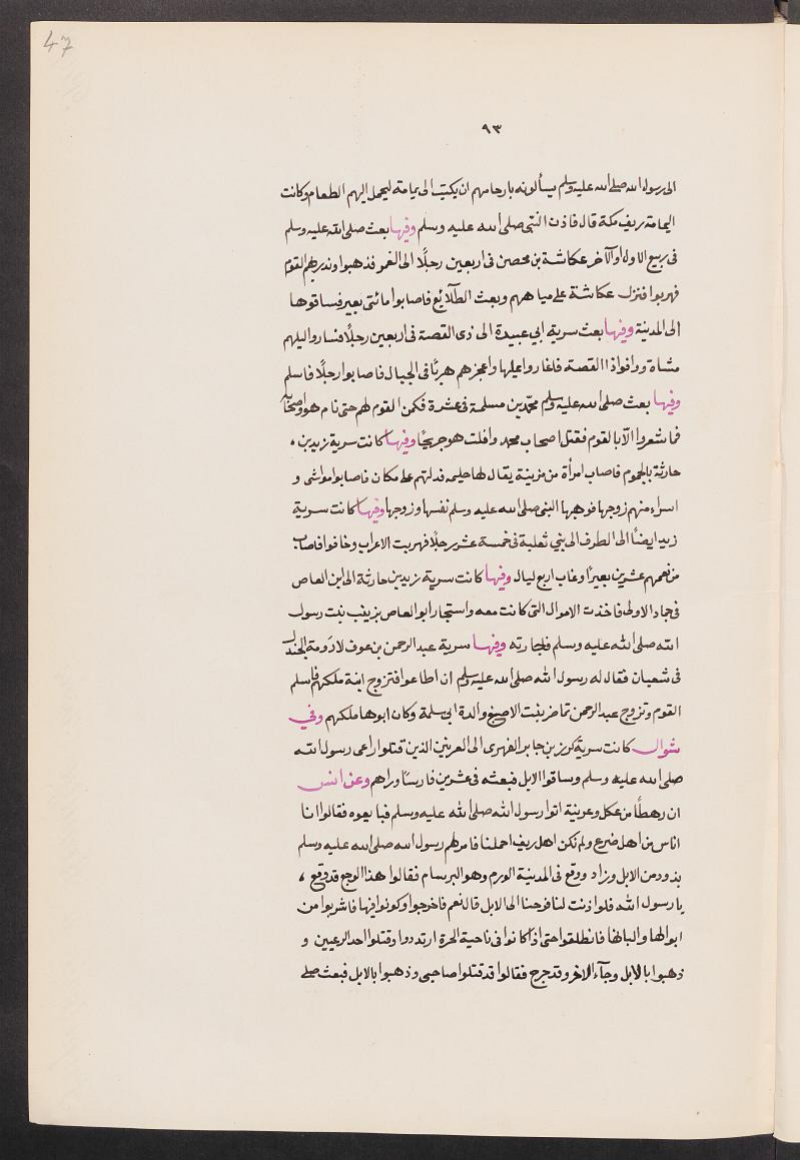 47
٩٣
الى رسول الله صلى الله عليه وسلم يسألونه بارحامهم ان يكتب الى يمامة ليحمل اليهم الطعام وكانت
اليمامة ريف مكة قال فاذن النبى صلى الله عليه وسلم وفيها بعث صلى الله عليه وسلم
فى ربيع الاول او الآخر عكاشة بن محصن فى اربعين رجلًا الى الغمر فذهبوا ونذر بهم القوم
فهربوا فنزل عكاشة على مياههم وبعث الطلآئع فاصابوا مائتى بعير فساقوها
الى المدينة وفيها بعث سرية ابي عبيدة الى ذى القصة فى اربعين رجلًا فساروا اليهم
مشاة ووافوا ذا القصة فاغاروا عليها واعجزهم هربًا فى الجبال فاصابوا رجلًا فاسلم
وفيها بعث صلى الله عليه وسلم محمد بن مسلمة فى عشرة فكمن القوم لهم حتى نام هو واصحابه
فما شعروا الّا بالقوم فقتل اصحاب محمد وافلت هو جريحًا وفيها كانت سرية زيد بن
حارثة بالجموم فاصاب امرأة من مزينة يقال لها حليمه فدلتهم على مكان فاصابوا مواشى و
اسراء منهم زوجها فوهبها النبى صلى الله عليه وسلم نفسها وزوجها وفيها كانت سرية
زيد ايضًا الى الطرف الى بني ثعلبة فى خمسة عشر رجلًا فهربت الاعراب وخافوا فاصاب
من نعمهم عشرين بعيرًا وغاب اربع ليال وفيها كانت سرية زيد بن حارثة الى ابن العاص
فى جماد الاولى فاخذت الاموال التى كانت معه واستجار ابو العاص بزينب بنت رسول
الله صلى الله عليه وسلم فاجارته وفيها سرية عبد الرحمن بن عوف لا دَومة الجندل
فى شعبان فقال له رسول الله صلى الله عليه وسلم ان اطاعوا فتزوج ابنة ملكهم فاسلم
القوم وتزوج عبد الرحمن تماضر بنت الاصبغ والدة ابى سلمة وكان ابوها ملكهم وفي
شوال كانت سرية كرز بن جابر الفهرى الى العرنيين الذين قتلوا راعى رسول الله
صلى الله عليه وسلم وساقوا الابل فبعثه فى عشرين فارسًا وراهم وعن انس
ان رهطًا من عكل وعرينة اتوا رسول الله صلى الله عليه وسلم فبايعوه فقالوا انا
اناس من اهل ضرع ولم نكن اهل ريف احملنا فامر لهم رسول الله صلى الله عليه وسلم
بذود من الابل وزاد ووقع فى المدينة الورم وهو البرسام فقالوا هذا الوجع قد وقع ،
يا رسول الله فلو اذنت لنا فرجنا الى الابل قال نعم فاخرجوا وكونوا فيها فاشربوا من
ابوالها والبانها فانطلقوا حتى اذا كانوا فى ناحية الحرة ارتددوا وقتلوا احد الرعيين و
ذهبوا بالابل وجآء الاخر وقد جرح فقالوا قد قتلوا صاحبى وذهبوا بالابل فبعث صلى